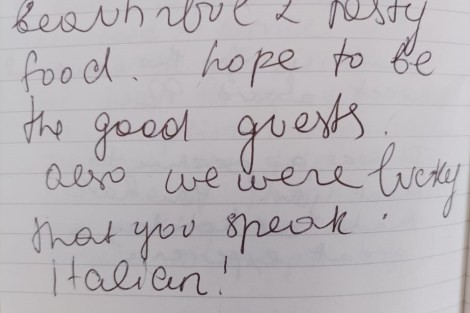 beautiful & tasty
food. hope to be
the good guests.
also we were lucky
that you speak.
italian!